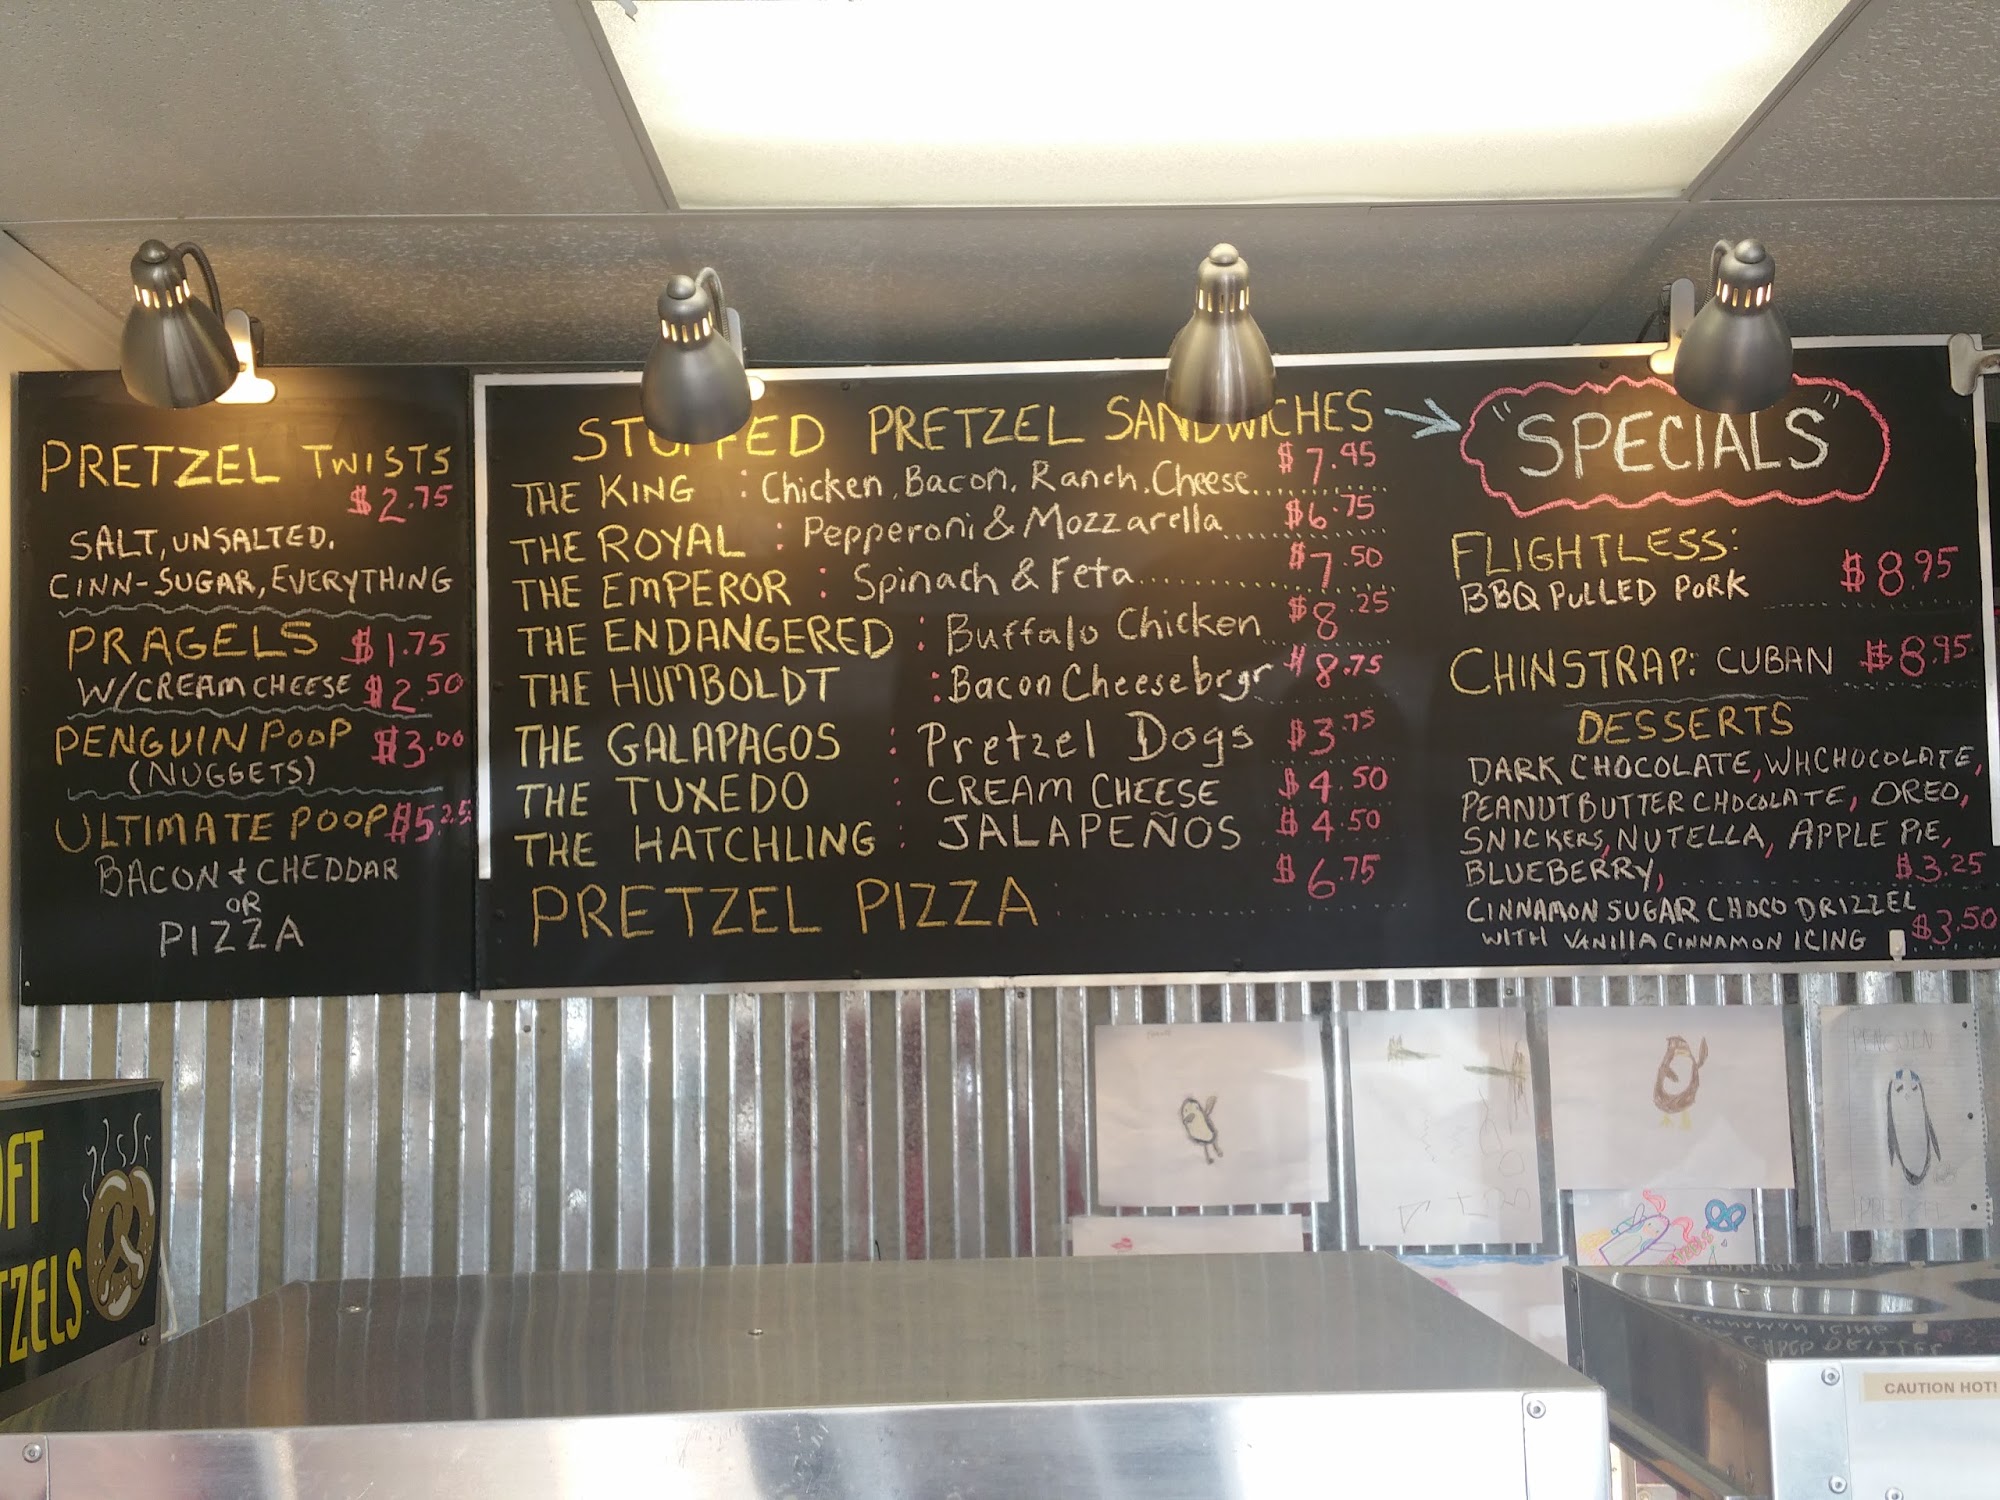 PRETZEL TWISTS
$2.75
SALT, UNSALTED,
CINN-SUGAR, EVERYTHING
PRAGELS $1.75
W/CREAM CHEESE $2.50
PENGUIN POOP $3.00
(NUGGETS)
ULTIMATE POOP $5.25
BACON & CHEDDAR
OR
PIZZA
STUFFED PRETZEL SANDWICHES
THE KING : Chicken, Bacon, Ranch, Cheese $7.95
THE ROYAL : Pepperoni & Mozzarella $6.75
THE EMPEROR : Spinach & Feta $7.50
THE ENDANGERED : Buffalo Chicken $8.25
THE HUMBOLDT : Bacon Cheesebrgr $8.75
THE GALAPAGOS : Pretzel Dogs $3.75
THE TUXEDO : CREAM CHEESE $4.50
THE HATCHLING : JALAPEÑOS $4.50
PRETZEL PIZZA $6.75
"SPECIALS"
FLIGHTLESS:
BBQ PULLED PORK $8.95
CHINSTRAP: CUBAN $8.95
DESSERTS
DARK CHOCOLATE, WHCHOCOLATE,
PEANUTBUTTER CHOCOLATE, OREO,
SNICKERS, NUTELLA, APPLE PIE,
BLUEBERRY, $3.25
CINNAMON SUGAR CHOCO DRIZZEL
WITH VANILLA CINNAMON ICING $3.50
PENGUIN
PRETZEL
OFT
TZELS
CAUTION HOT!